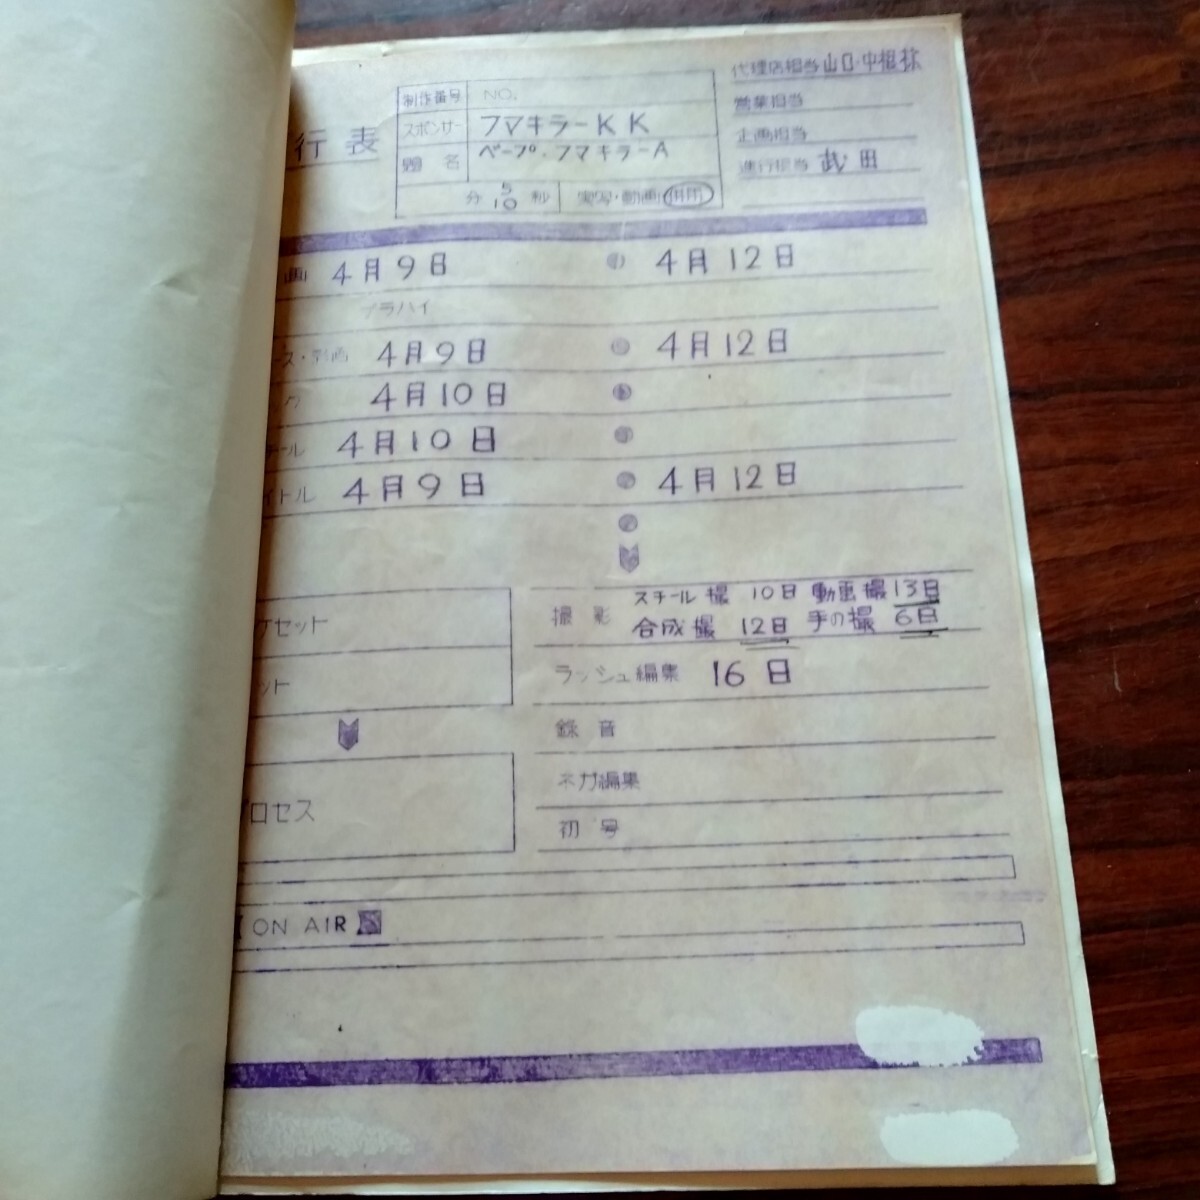 行表
制作番号 NO.
スポンサー フマキラーKK
題名 ベープ・フマキラーA
分 5 10 秒 実写・動画 併用
代理店担当 山口・中根様
営業担当
企画担当
進行担当 武田
画 4月9日 4月12日
ブラハイ
ース・影画 4月9日 4月12日
ク 4月10日
ール 4月10日
イトル 4月9日 4月12日
ケセット
ット
プロセス
撮影 スチール撮 10日 動画撮 13日
合成撮 12日 手の撮 6日
ラッシュ編集 16日
録音
ネガ編集
初号
ON AIR